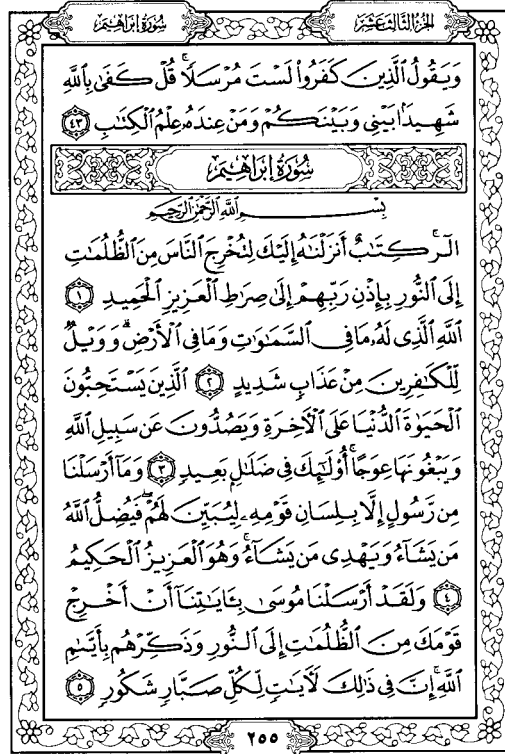 سُورَةُ إِبْرَاهِيم
الجُزْءُ الثَّالِثَ عَشَرَ
وَيَقُولُ ٱلَّذِينَ كَفَرُوا۟ لَسْتَ مُرْسَلًا ۚ قُلْ كَفَىٰ بِٱللَّهِ
شَهِيدًۢا بَيْنِى وَبَيْنَكُمْ وَمَنْ عِندَهُۥ عِلْمُ ٱلْكِتَٰبِ ٤٣
سُورَةُ إِبْرَاهِيمَ
بِسْمِ ٱللَّهِ ٱلرَّحْمَٰنِ ٱلرَّحِيمِ
الٓر ۚ كِتَٰبٌ أَنزَلْنَٰهُ إِلَيْكَ لِتُخْرِجَ ٱلنَّاسَ مِنَ ٱلظُّلُمَٰتِ
إِلَى ٱلنُّورِ بِإِذْنِ رَبِّهِمْ إِلَىٰ صِرَٰطِ ٱلْعَزِيزِ ٱلْحَمِيدِ ١
ٱللَّهِ ٱلَّذِى لَهُۥ مَا فِى ٱلسَّمَٰوَٰتِ وَمَا فِى ٱلْأَرْضِ ۗ وَوَيْلٌ
لِّلْكَٰفِرِينَ مِنْ عَذَابٍ شَدِيدٍ ٢ ٱلَّذِينَ يَسْتَحِبُّونَ
ٱلْحَيَوٰةَ ٱلدُّنْيَا عَلَى ٱلْءَاخِرَةِ وَيَصُدُّونَ عَن سَبِيلِ ٱللَّهِ
وَيَبْغُونَهَا عِوَجًا ۚ أُو۟لَٰٓئِكَ فِى ضَلَٰلٍۭ بَعِيدٍ ٣ وَمَآ أَرْسَلْنَا
مِن رَّسُولٍ إِلَّا بِلِسَانِ قَوْمِهِۦ لِيُبَيِّنَ لَهُمْ ۖ فَيُضِلُّ ٱللَّهُ
مَن يَشَآءُ وَيَهْدِى مَن يَشَآءُ ۚ وَهُوَ ٱلْعَزِيزُ ٱلْحَكِيمُ
٤ وَلَقَدْ أَرْسَلْنَا مُوسَىٰ بِـَٔايَٰتِنَآ أَنْ أَخْرِجْ
قَوْمَكَ مِنَ ٱلظُّلُمَٰتِ إِلَى ٱلنُّورِ وَذَكِّرْهُم بِأَيَّىٰمِ
ٱللَّهِ ۚ إِنَّ فِى ذَٰلِكَ لَءَايَٰتٍ لِّكُلِّ صَبَّارٍ شَكُورٍ ٥
٢٥٥